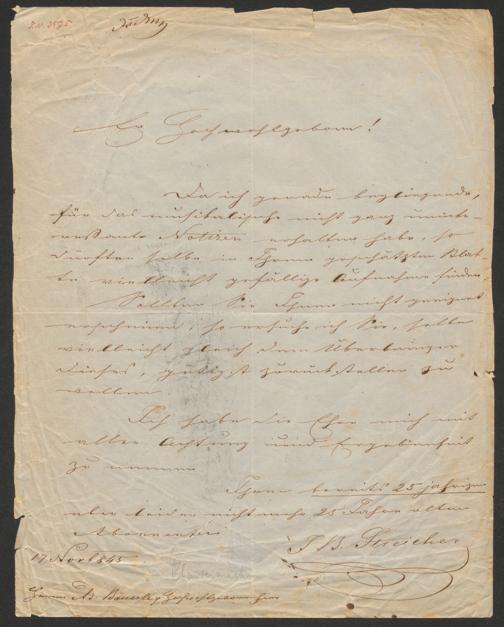 Ew Hochwohlgeborn!
Da ich gerade beyliegende,
für das musikalische nicht ganz uninte-
ressante Notizen erhalten habe, so
dürften selbe in Ihrem geschätzten Blat-
te vielleicht gefällige Aufnahme finden.
Sollten Sie Ihnen nicht geeignet
erscheinen, so ersuche ich Sie, selbe
vielleicht gleich dem Überbringer
dieses, gütigst zurückstellen zu
wollen.
Ich habe die Ehre mich mit
aller Achtung und Ergebenheit
zu nennen
Ihren bereits 25 jährigen
aber leider nicht mehr 25 Jahre alten
Abonnenten
J B. Streicher
17 Nov 1845
Herrn Ad. Bäuerle Hochwohlgeborn